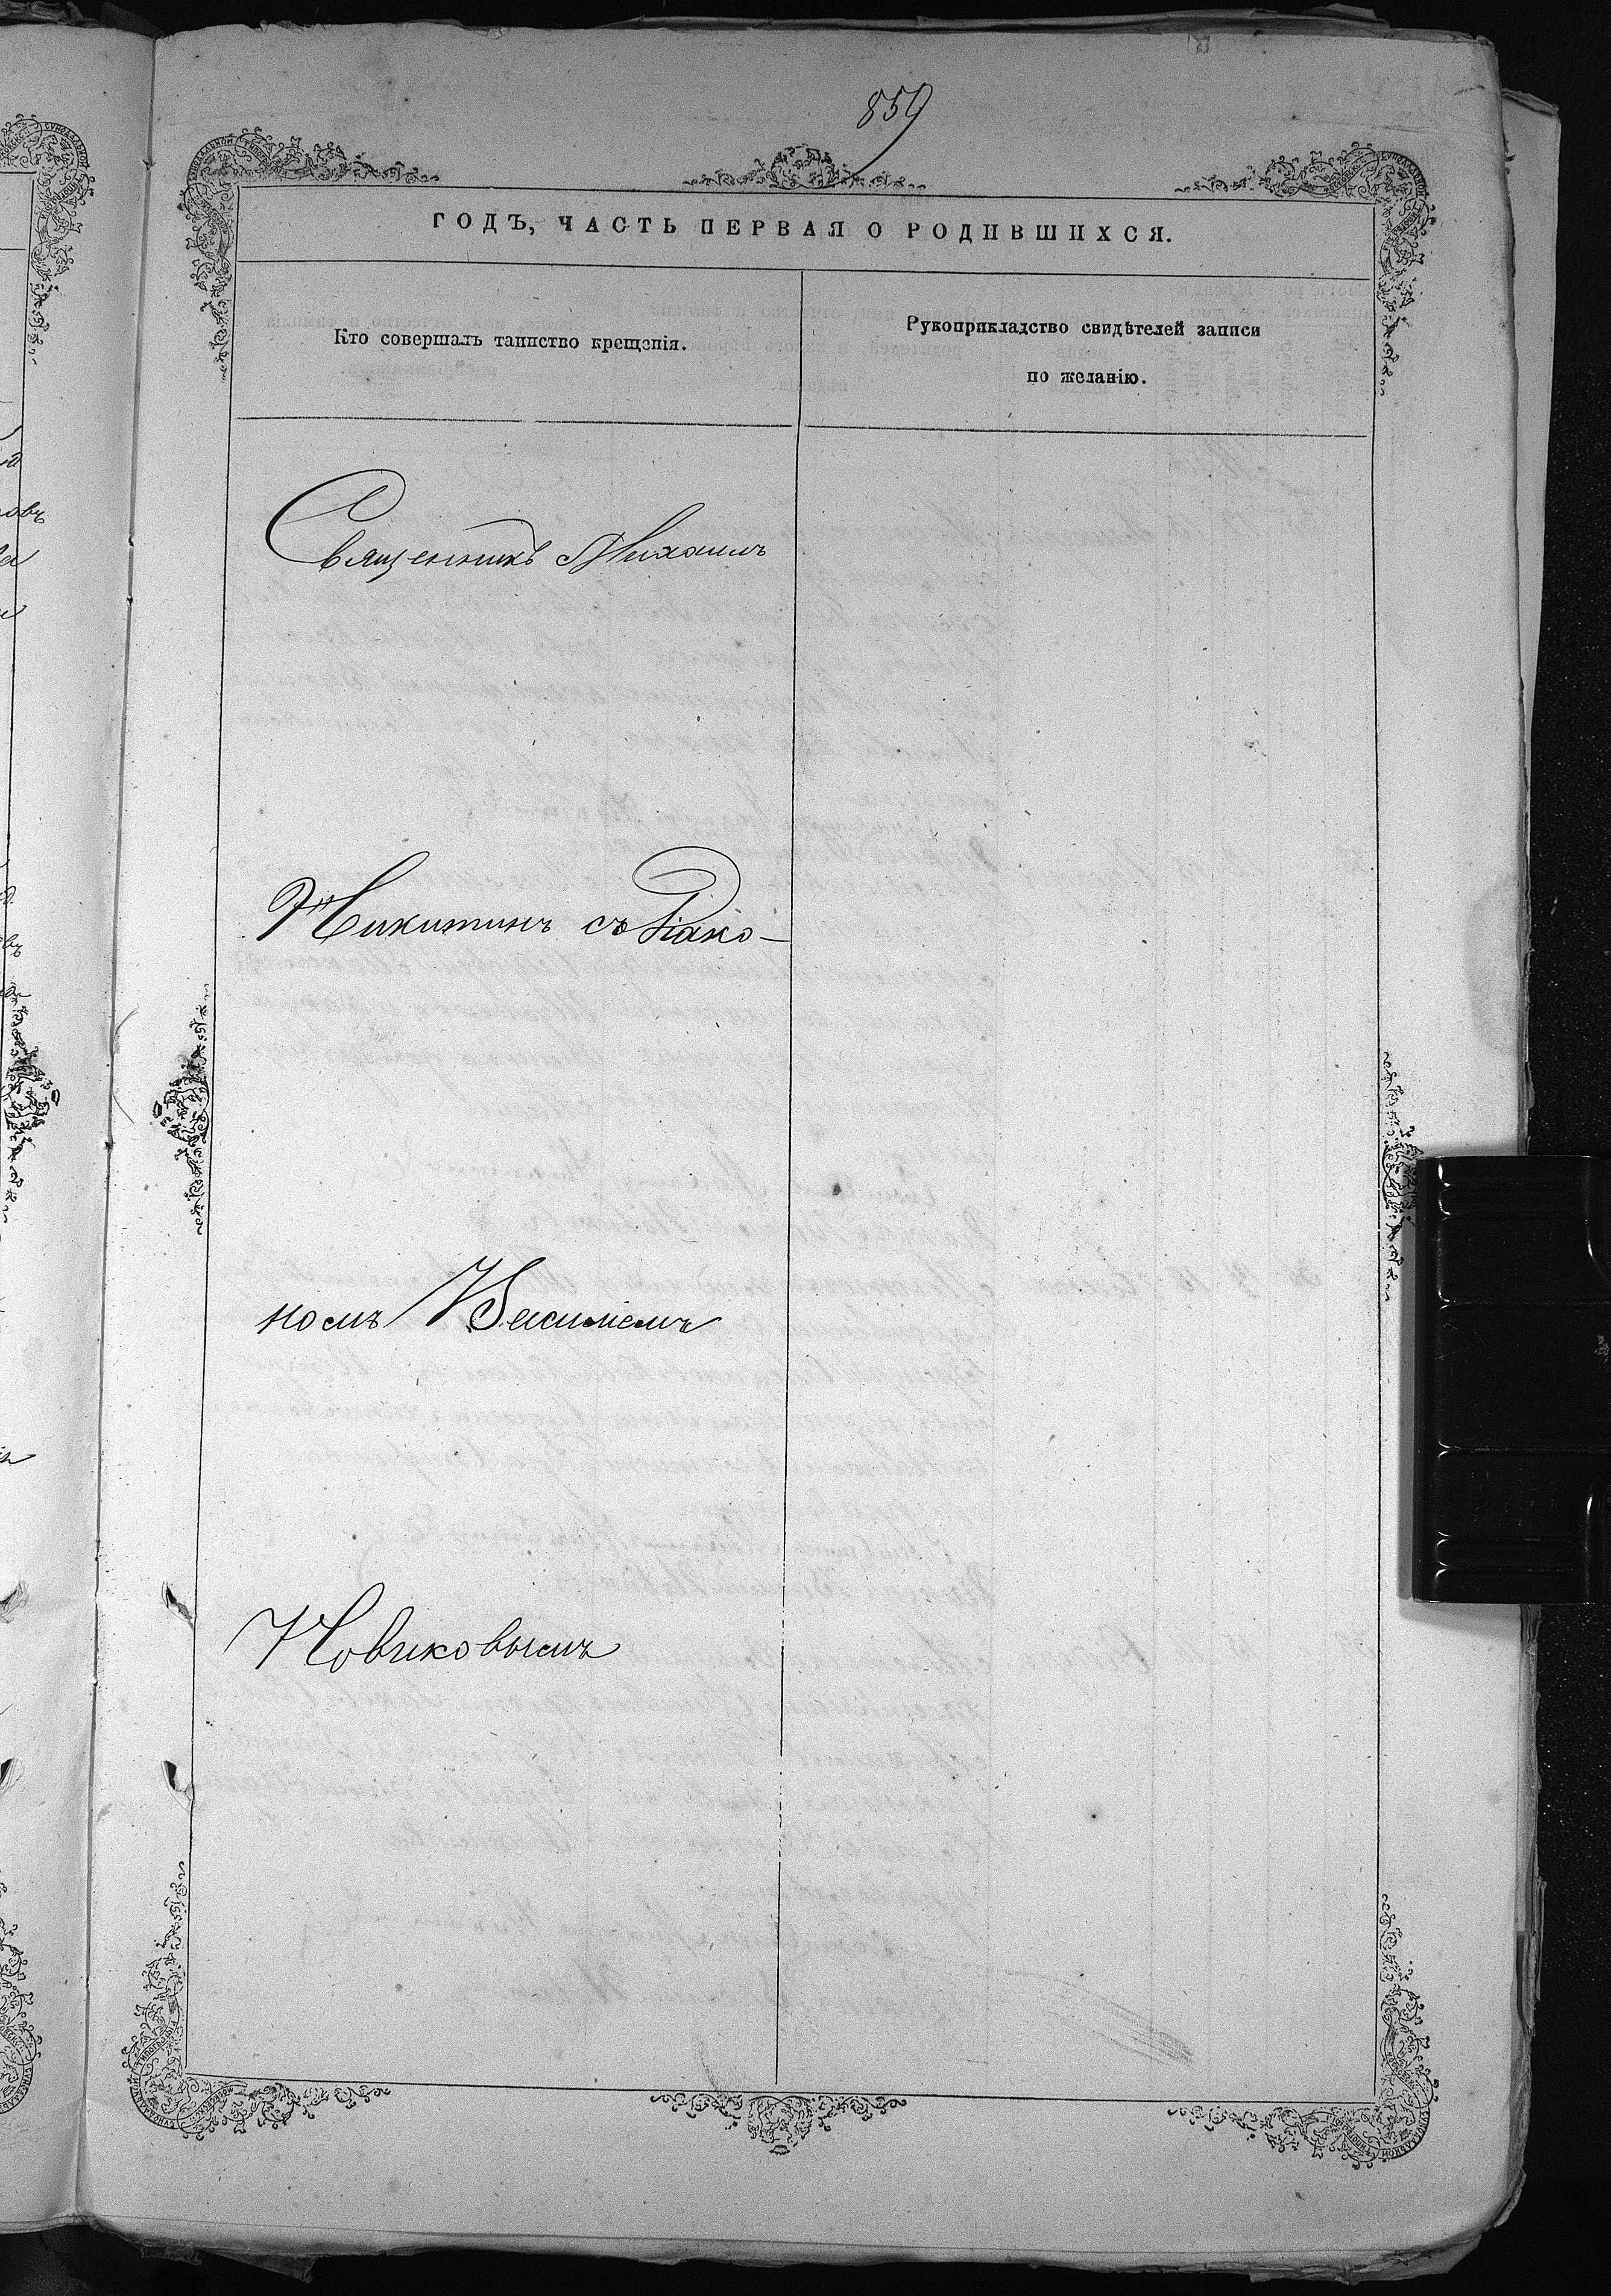 859
ГОДЪ, ЧАСТЬ ПЕРВАЯ О РОДИВШИХСЯ.
Кто совершалъ таинство крещенія.
Рукоприкладство свидѣтелей записи
по желанію.
Священникъ Михаилъ
Никитинъ съ Діако-
номъ Василіемъ
Новиковымъ